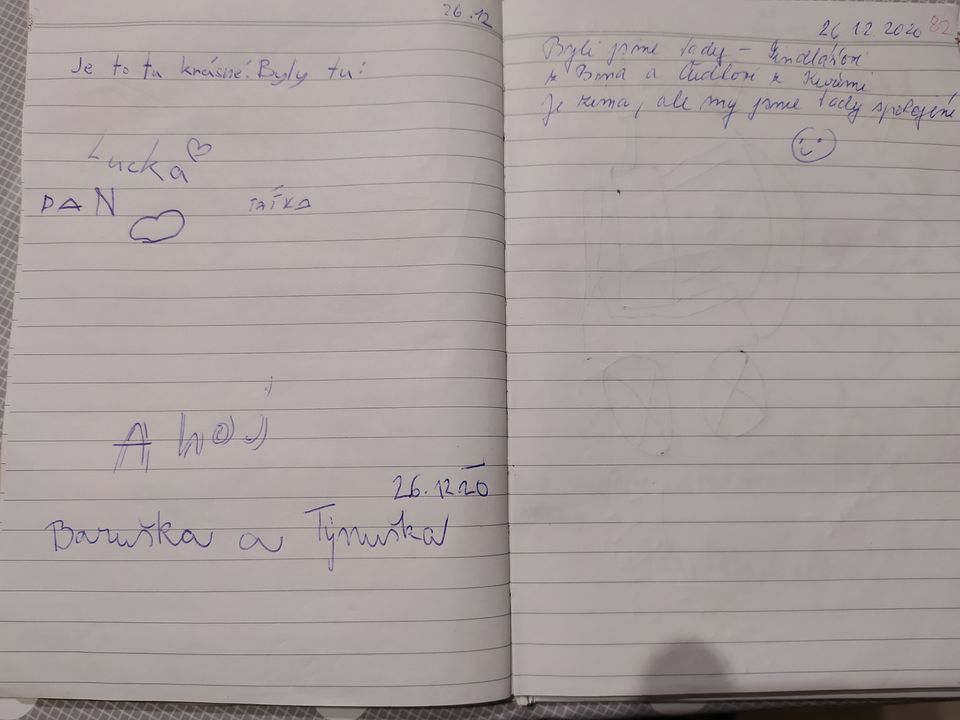 26.12
Je to tu krásné! Byly tu:
Lucka
DAN
TAŤKA
Ahoj
26.12 20
Baruška a Týnuška
26 12 2020 82
Byli jsme tady –
z Brna a z
Je zima, ale my jsme tady spokojení